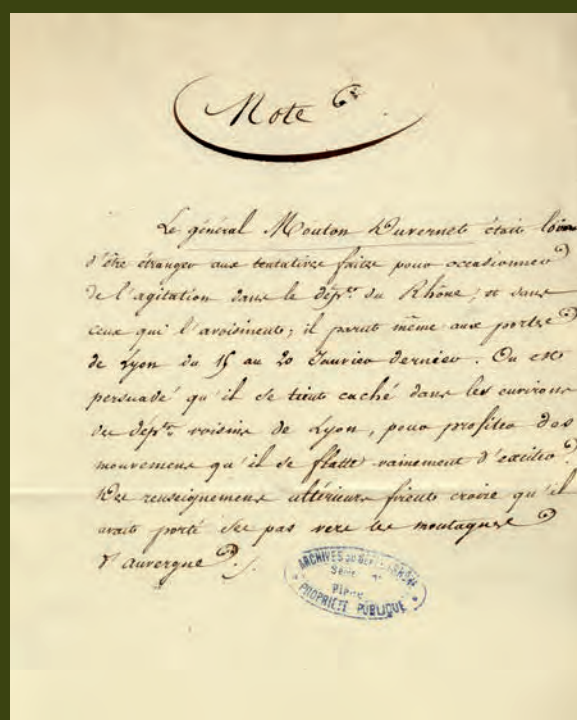 Note
Le général Mouton Duvernet était loin
d'être étranger aux tentatives faites pour occasionner
de l'agitation dans le dépt. du Rhône, et dans
ceux qui l'avoisinent; il parut même aux portes
de Lyon du 15 au 20 Janvier dernier. On est
persuadé qu'il se tient caché dans les environs
ou dépts. voisins de Lyon, pour profiter des
mouvemens qu'il se flatte vainement d'exciter.
Des renseignemens ultérieurs firent croire qu'il
avait porté ses pas vers les montagnes
d'auvergne ./.
ARCHIVES DU RHÔNE
Série
Pièce
PROPRIÉTÉ PUBLIQUE